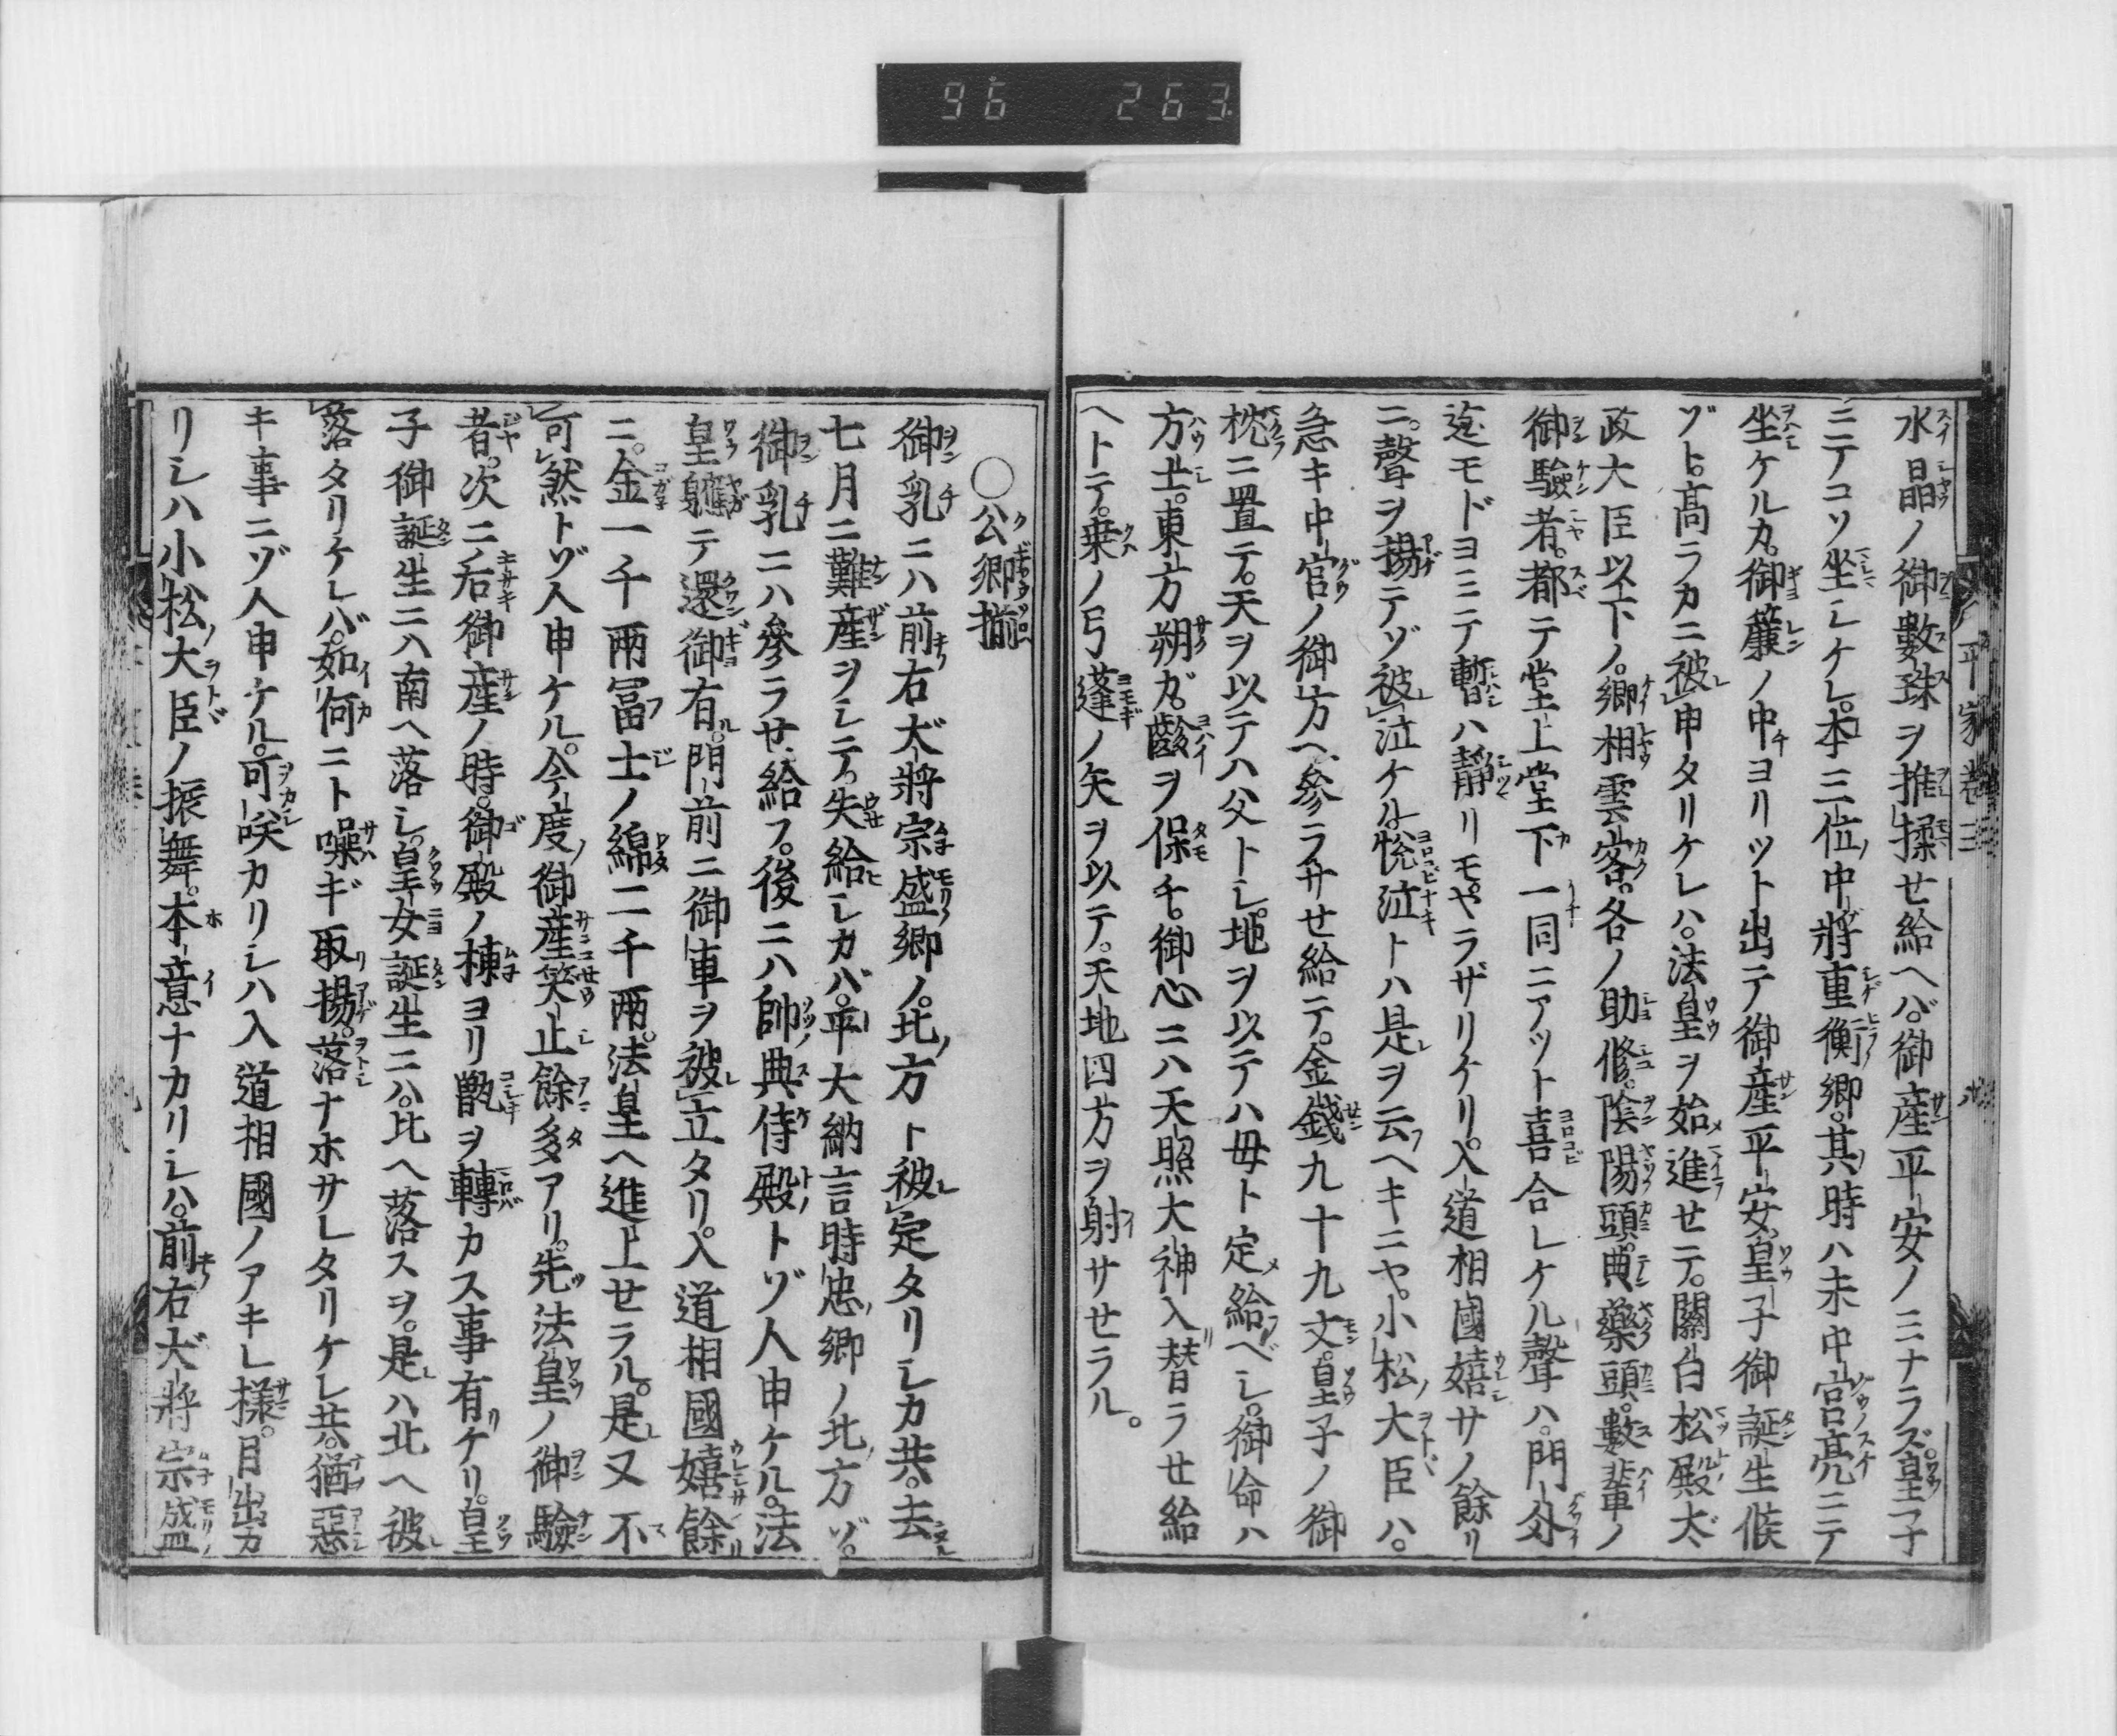 96 263
平家卷三
水晶ノ御數珠ヲ推揉せ給ヘバ。御産平安ノミナラズ。皇子
ニテコソ坐シケレ。本三位中將重衡卿。其時ハ未中宮亮ニテ
坐ケルカ。御簾ノ中ヨリツト出テ御産平安。皇子御誕生候
ゾト。高ラカニ被申タリケレハ。法皇ヲ始進せテ。關白松殿太
政大臣以下ノ。卿相雲客。各ノ助修。陰陽頭。典藥頭。數輩ノ
御驗者。都テ堂上堂下一同ニアツト喜合レケル聲ハ。門外
迄モドヨミテ暫ハ靜リモヤラザリケリ。入道相國嬉サノ餘リ
ニ。聲ヲ揚テゾ被泣ケル。悦泣トハ是ヲ云ヘキニヤ。小松大臣ハ。
急キ中宮ノ御方ヘ參ラサせ給テ。金錢九十九文。皇子ノ御
枕ニ置テ。天ヲ以テハ父トシ。地ヲ以テハ母ト定給ベシ。御命ハ
方士。東方朔カ。齡ヲ保チ。御心ニハ天照大神入替ラせ給
ヘトテ。桑ノ弓蓬ノ矢ヲ以テ。天地四方ヲ射サせラル。
○公卿揃
御乳ニハ前右大將宗盛卿ノ。北方ト被定タリシカ共。去
七月ニ難産ヲシテ。失給シカバ。平大納言時忠卿ノ北方ゾ。
御乳ニハ參ラせ給フ。後ニハ帥典侍殿トゾ人申ケル。法
皇軈テ還御有。門前ニ御車ヲ被立タリ。入道相國嬉餘
ニ。金一千兩冨士ノ綿二千兩。法皇ヘ進上せラル。是又不
可然トゾ人申ケル。今度御産笑止餘多アリ。先法皇ノ御驗
者。次ニ后御産ノ時。御殿ノ棟ヨリ甑ヲ轉カス事有ケリ。皇
子御誕生ニハ南ヘ落シ。皇女誕生ニハ。北ヘ落スヲ。是ハ北ヘ被
落タリケレバ。如何ニト噪ギ取揚。落ナホサレタリケレ共。猶惡
キ事ニゾ人申ケル。可咲カリシハ入道相國ノアキレ樣。目出カ
リシハ小松大臣ノ振舞。本意ナカリシハ。前右大將宗盛